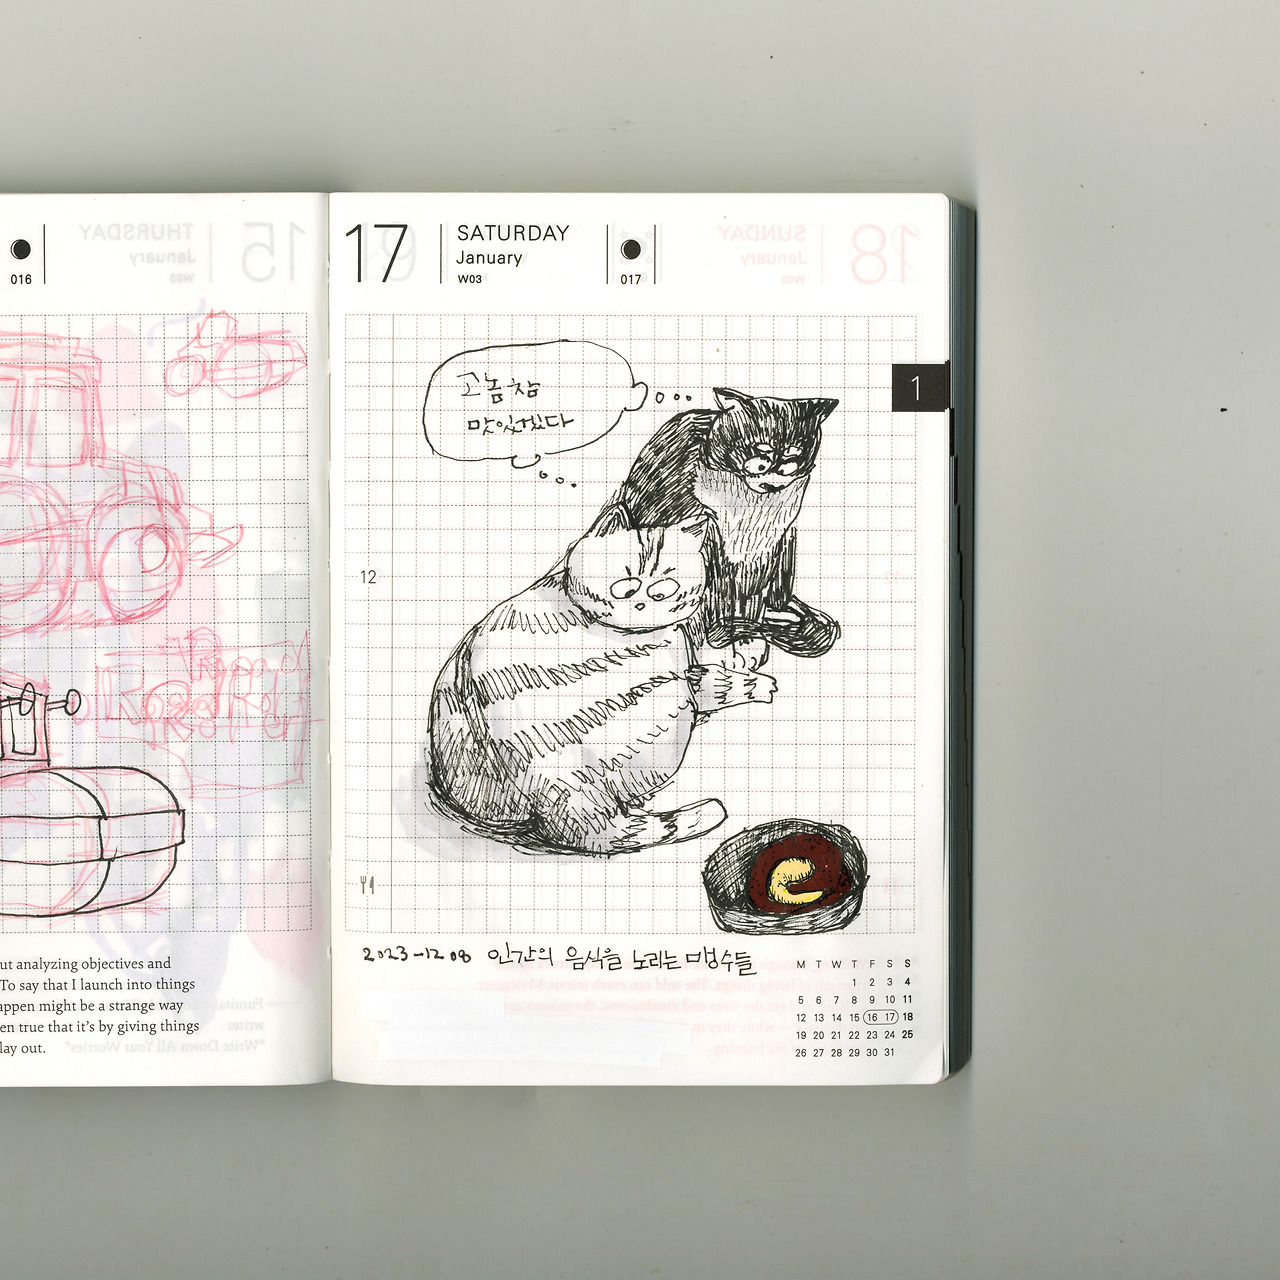 016
17
SATURDAY
January
W03
017
1
고놈 참
맛있겠다
12
2023-12 08 인간의 음식을 노리는 맹수들
ut analyzing objectives and
To say that I launch into things
appen might be a strange way
en true that it's by giving things
lay out.
M T W T F S S
1 2 3 4
5 6 7 8 9 10 11
12 13 14 15 16 17 18
19 20 21 22 23 24 25
26 27 28 29 30 31